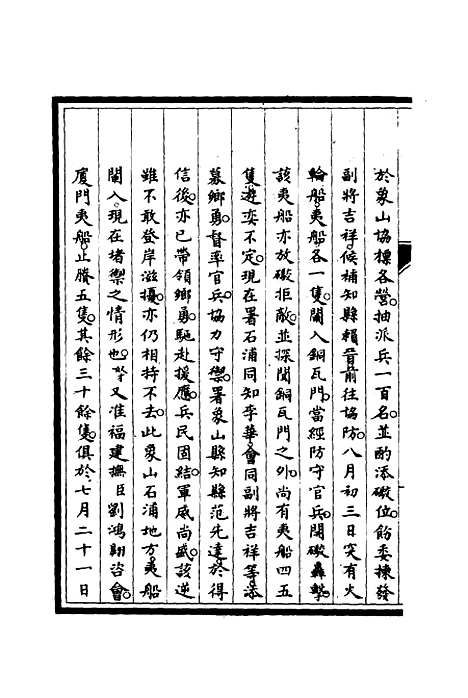 於象山協標各營抽派兵一百名並酌添礮位飭委揀發
副將吉祥候補知縣賴晉前往協防八月初三日突有火
輪船夷船各一隻闖入銅瓦門當經防守官兵開礮轟擊
該夷船亦放礮拒敵並探聞銅瓦門之外尚有夷船四五
隻遊奕不定現在署石浦同知李華會同副將吉祥等添
募鄉勇督率官兵協力守禦署象山縣知縣范先達於得
信後亦已帶領鄉勇馳赴援應兵民固結軍威尚盛該逆
雖不敢登岸滋擾亦仍相持不去此象山石浦地方夷船
闖入現在堵禦之情形也等又准福建撫臣劉鴻翱咨會
廈門夷船止賸五隻其餘三十餘隻俱於七月二十一日